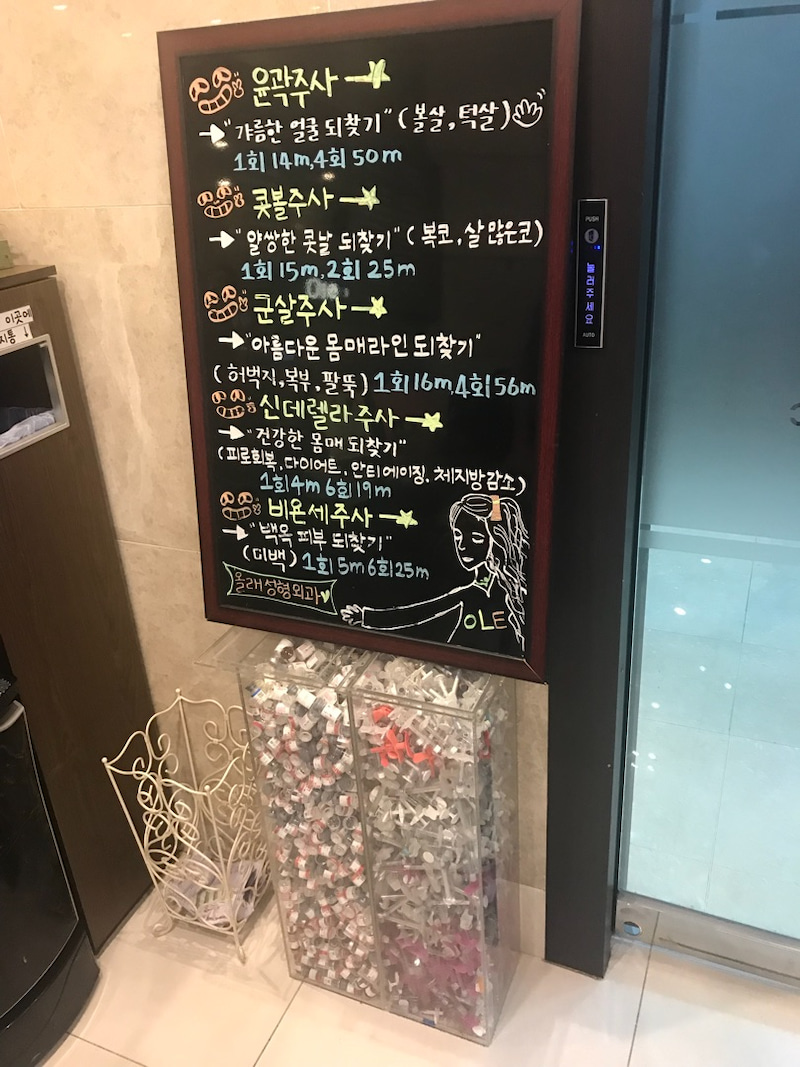 윤곽주사
"갸름한 얼굴 되찾기" (볼살, 턱살)
1회 14m, 4회 50m
콧볼주사
"얄쌍한 콧날 되찾기" (복코, 살 많은코)
1회 15m, 2회 25m
군살주사
"아름다운 몸매라인 되찾기"
(허벅지, 복부, 팔뚝) 1회 16m, 4회 56m
신데렐라 주사
"건강한 몸매 되찾기"
(피로회복, 다이어트, 안티에이징, 체지방감소)
1회 4m 6회 19m
비욘세주사
"백옥 피부 되찾기"
(미백) 1회 5m 6회 25m
올래성형외과
OLE
PUSH
눌러주세요
AUTO
이곳에